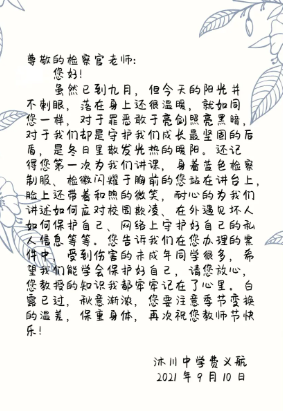 尊敬的检察官老师：
您好！
虽然已到九月，但今天的阳光并
不刺眼，落在身上还很温暖，就如同
您一样，对于罪恶敢于亮剑照亮黑暗，
对于我们却是守护我们成长最坚固的后
盾，是冬日里散发光热的暖阳。还记
得您第一次为我们讲课，身着蓝色检察
制服、检徽闪耀于胸前的您站在讲台上，
脸上还带着和煦的微笑，耐心的为我们
讲述如何应对校园欺凌、在外遇见坏人
如何保护自己、网络上守护好自己的私
人信息等等。您告诉我们在您办理的案
件中，受到伤害的未成年同学很多，希
望我们能学会保护好自己，请您放心，
您教授的知识我都牢牢记在了心里。白
露已过，秋意渐浓，您要注意季节变换
的温差，保重身体，再次祝您教师节快
乐！
沐川中学费义航
2021年9月10日